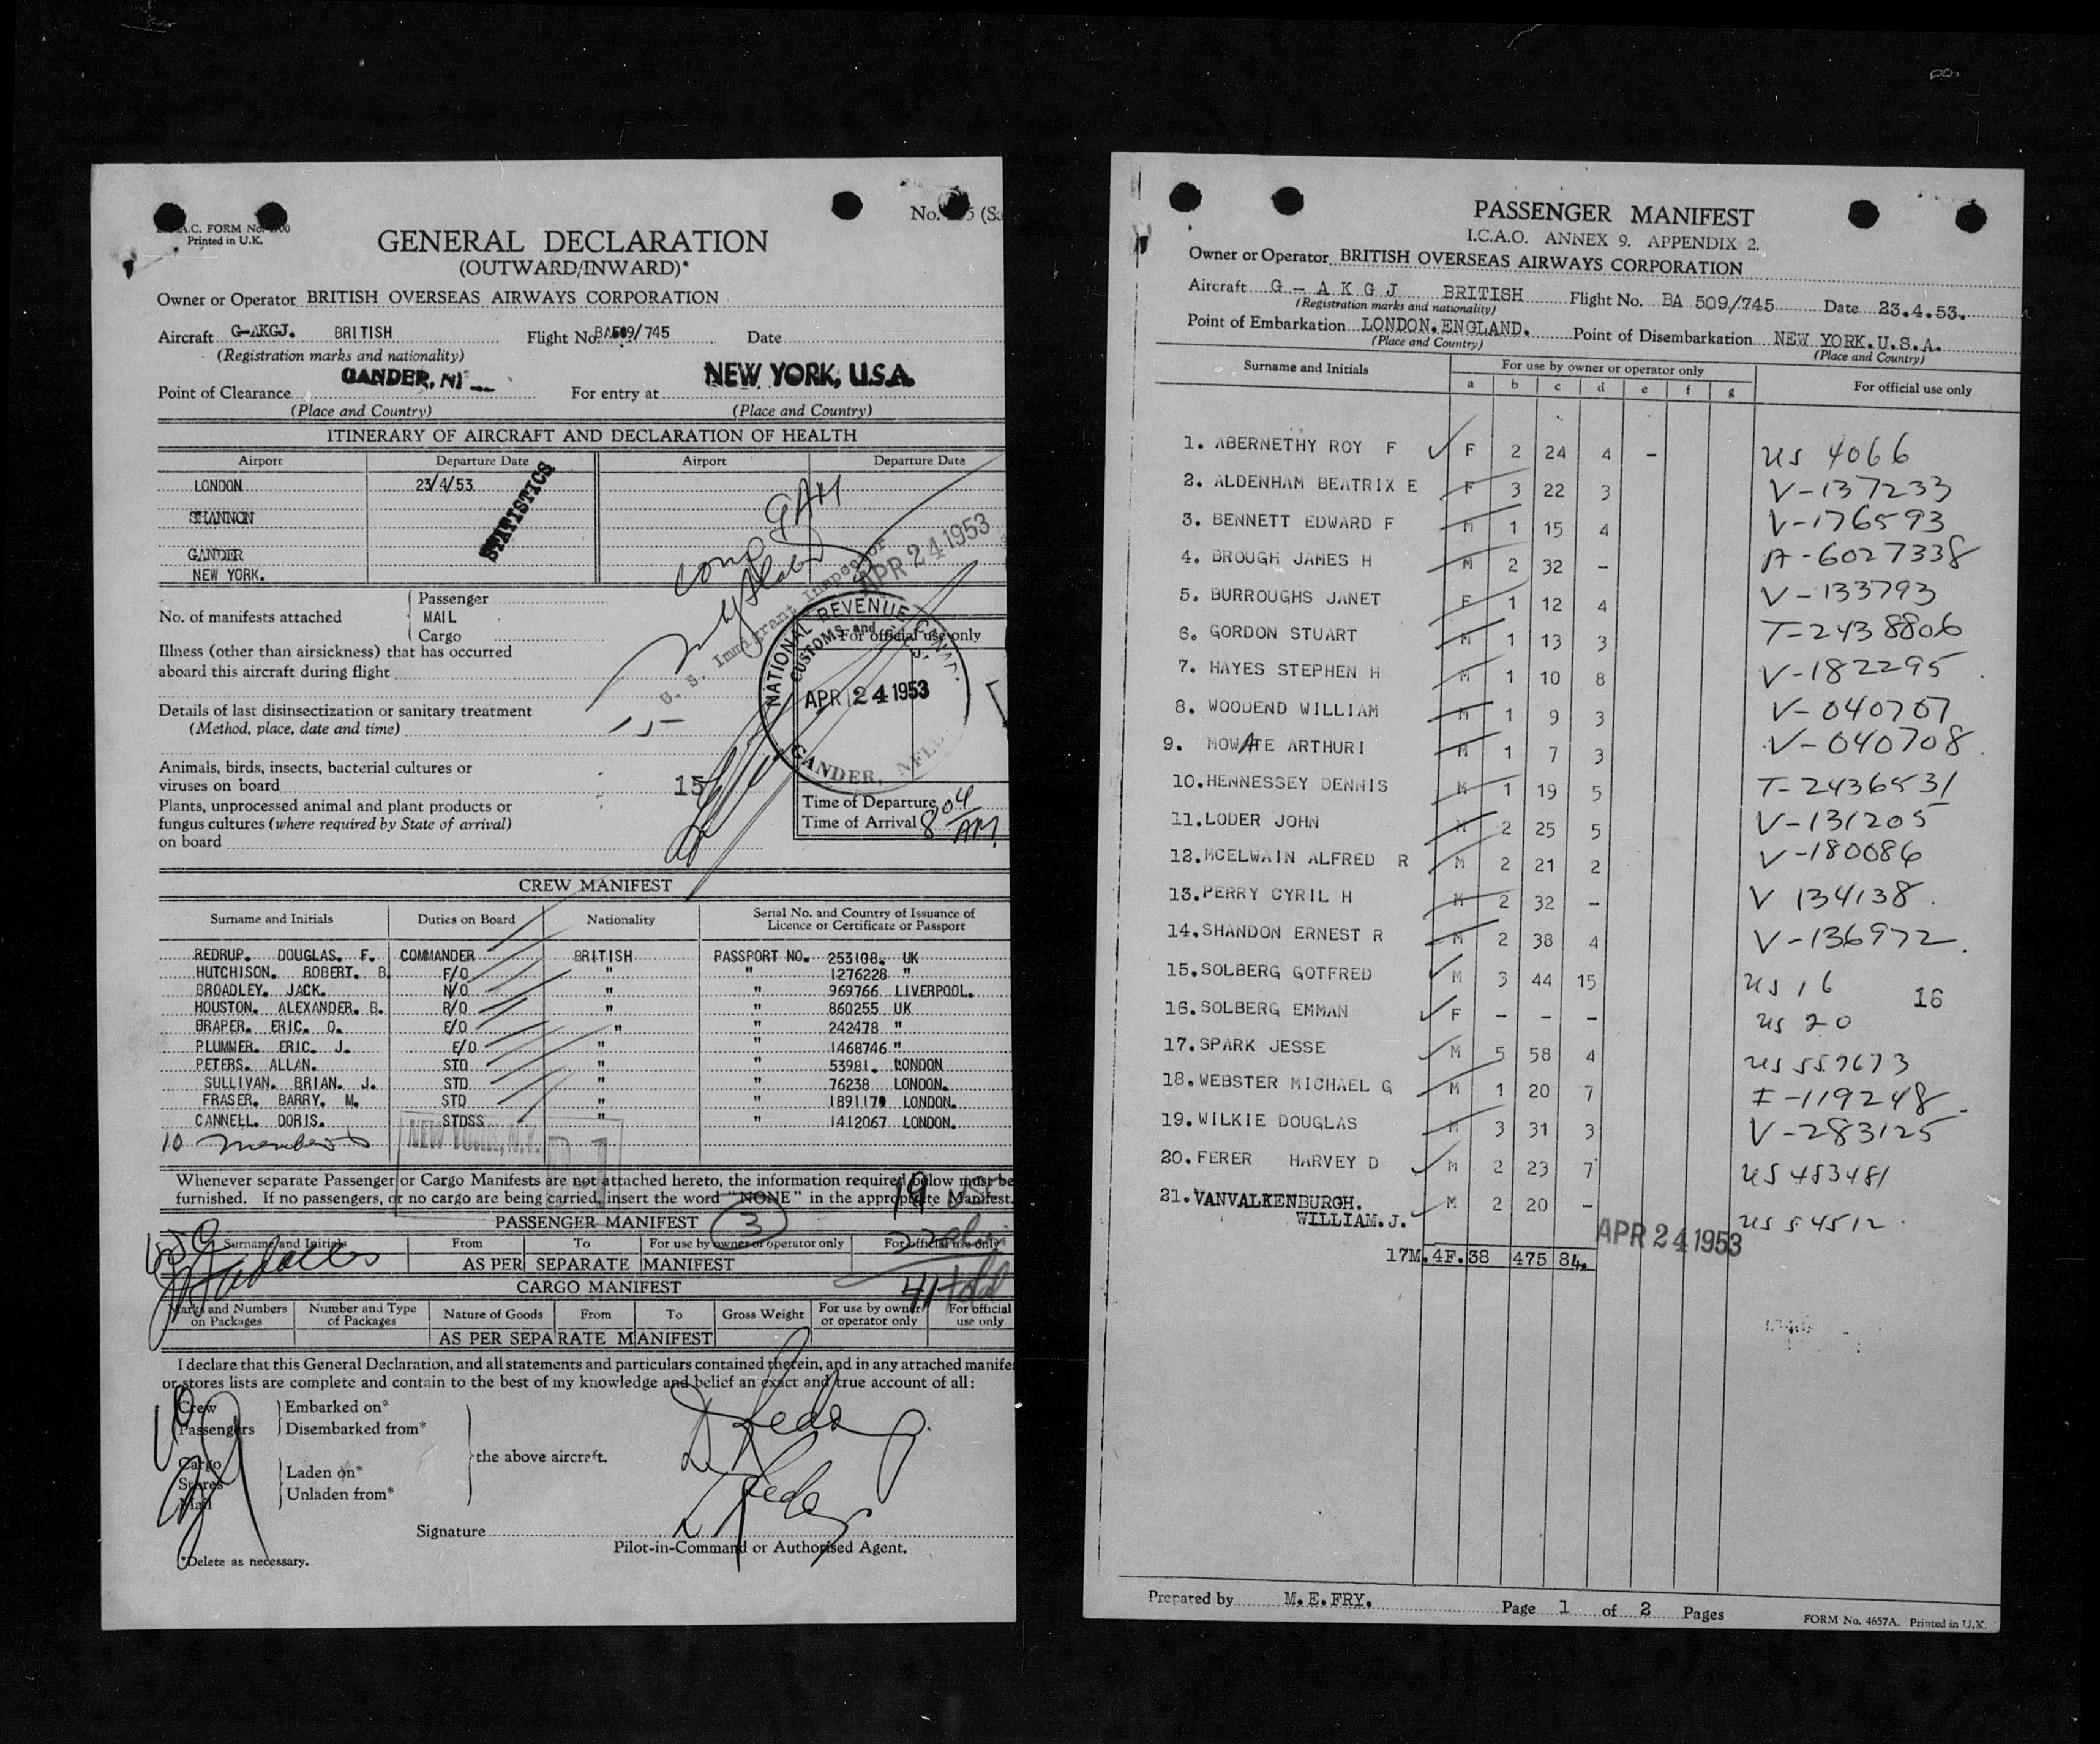 No. 5 (S
A.C. FORM No. 00
Printed in U.K.
GENERAL DECLARATION
(OUTWARD/INWARD)*
Owner or Operator BRITISH OVERSEAS AIRWAYS CORPORATION
Aircraft G-AKGJ. BRITISH Flight No. BA509/745 Date
(Registration marks and nationality)
Point of Clearance GANDER, NF For entry at NEW YORK, U.S.A.
(Place and Country) (Place and Country)
ITINERARY OF AIRCRAFT AND DECLARATION OF HEALTH
Airport Departure Date Airport Departure Date
LONDON 23/4/53
SHANNON
GANDER
NEW YORK.
STATISTICS
U. S. Immigrant Inspector
APR 24 1953
No. of manifests attached
Passenger
MAIL
Cargo
Illness (other than airsickness) that has occurred
aboard this aircraft during flight
Details of last disinsectization or sanitary treatment
(Method, place, date and time)
Animals, birds, insects, bacterial cultures or
viruses on board 15
Plants, unprocessed animal and plant products or
fungus cultures (where required by State of arrival)
on board
For official use only
NATIONAL REVENUE CANAD.
CUSTOMS and
APR 24 1953
GANDER, NFL
Time of Departure
Time of Arrival 8 04 AM.
CREW MANIFEST
Surname and Initials Duties on Board Nationality Serial No. and Country of Issuance of Licence or Certificate or Passport
REDRUP. DOUGLAS. F. COMMANDER BRITISH PASSPORT NO. 253108. UK
HUTCHISON. ROBERT. B. F/O " " 1276228 "
BROADLEY. JACK. N/O " " 969766 LIVERPOOL.
HOUSTON. ALEXANDER. B. R/O " " 860255 UK
DRAPER. ERIC. O. E/O " " 242478 "
PLUMMER. ERIC. J. E/O " " 1468746 "
PETERS. ALLAN. STD " " 53981. LONDON
SULLIVAN. BRIAN. J. STD " " 76238 LONDON.
FRASER. BARRY. M. STD " " 1891170 LONDON.
CANNELL. DORIS. STDSS " " 1412067 LONDON.
10 members
NEW YORK, N.Y.
Whenever separate Passenger or Cargo Manifests are not attached hereto, the information required below must be
furnished. If no passengers, or no cargo are being carried, insert the word "NONE" in the appropriate Manifest.
19
PASSENGER MANIFEST 3
Surname and Initials From To For use by owner or operator only For official use only
AS PER SEPARATE MANIFEST
CARGO MANIFEST 41 total
Marks and Numbers on Packages Number and Type of Packages Nature of Goods From To Gross Weight For use by owner or operator only For official use only
AS PER SEPARATE MANIFEST
I declare that this General Declaration, and all statements and particulars contained therein, and in any attached manife
or stores lists are complete and contain to the best of my knowledge and belief an exact and true account of all:
Crew
Passengers
Embarked on*
Disembarked from*
the above aircraft.
Cargo
Stores
Mail
Laden on*
Unladen from*
Signature
Pilot-in-Command or Authorised Agent.
*Delete as necessary.
PASSENGER MANIFEST
I.C.A.O. ANNEX 9. APPENDIX 2.
Owner or Operator BRITISH OVERSEAS AIRWAYS CORPORATION
Aircraft G - A K G J BRITISH Flight No. BA 509/745 Date 23.4.53.
(Registration marks and nationality)
Point of Embarkation LONDON.ENGLAND. Point of Disembarkation NEW YORK.U.S.A.
(Place and Country) (Place and Country)
Surname and Initials For use by owner or operator only For official use only
a b c d e f g
1. ABERNETHY ROY F F 2 24 4 - US 4066
2. ALDENHAM BEATRIX E F 3 22 3 V-137233
3. BENNETT EDWARD F M 1 15 4 V-176593
4. BROUGH JAMES H M 2 32 - A-6027338
5. BURROUGHS JANET F 1 12 4 V-133793
6. GORDON STUART M 1 13 3 T-2438806
7. HAYES STEPHEN H M 1 10 8 V-182295
8. WOODEND WILLIAM M 1 9 3 V-040707
9. MOWATE ARTHURI M 1 7 3 V-040708
10. HENNESSEY DENNIS M 1 19 5 T-2436531
11. LODER JOHN M 2 25 5 V-131205
12. MCELWAIN ALFRED R M 2 21 2 V-180086
13. PERRY CYRIL H M 2 32 - V 134138
14. SHANDON ERNEST R M 2 38 4 V-136972
15. SOLBERG GOTFRED M 3 44 15 US 16
16
16. SOLBERG EMMAN F - - - US 20
17. SPARK JESSE M 5 58 4 US 557673
18. WEBSTER MICHAEL G M 1 20 7 I-119248
19. WILKIE DOUGLAS M 3 31 3 V-283125
20. FERER HARVEY D M 2 23 7 US 483481
21. VANVALKENBURGH. WILLIAM.J. M 2 20 - US 54512
APR 24 1953
17M. 4F. 38 475 84.
Prepared by M.E.FRY. Page 1 of 2 Pages
FORM No. 4657A. Printed in U.K.